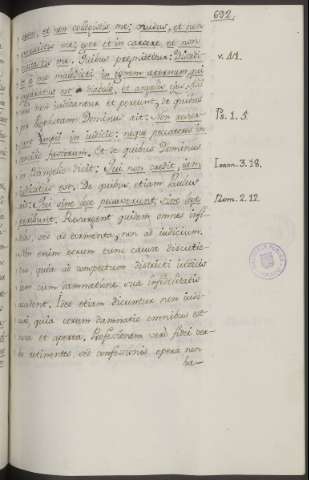 692.
et non collegistis me; nudus, et non
me; eger et in carcere, et non
me. Quibus proprietur: Discedi-
te a me maledicti in ignem æternum, qui
est diabolo, et angelis ejus. Alii
non judicantur et pereunt, de quibus
Prophetam Dominus ait: Non resur-
gent impii in judicio: neque peccatores in
consilio justorum. Et de quibus Dominus
in Evangelio dicit: Qui non credit, jam
judicatus est. De quibus etiam Paulus
ait: Qui sine lege peccaverunt, sine lege
peribunt. Resurgent quidem omnes infi-
deles, sed ad tormenta, non ad judicium.
Non enim eorum tunc causa discutie-
tur, quia ad conspectum districti judicis
jam cum damnatione suæ infidelitatis
accedent. Isti etiam dicuntur non judi-
cari, quia eorum damnatio omnibus est
nota et aperta. Professionem vero fidei
retinentes, sed confessionis opera non
ha-
v. 41.
Ps. 1. 5.
Joann. 3. 18.
Rom. 2. 12.